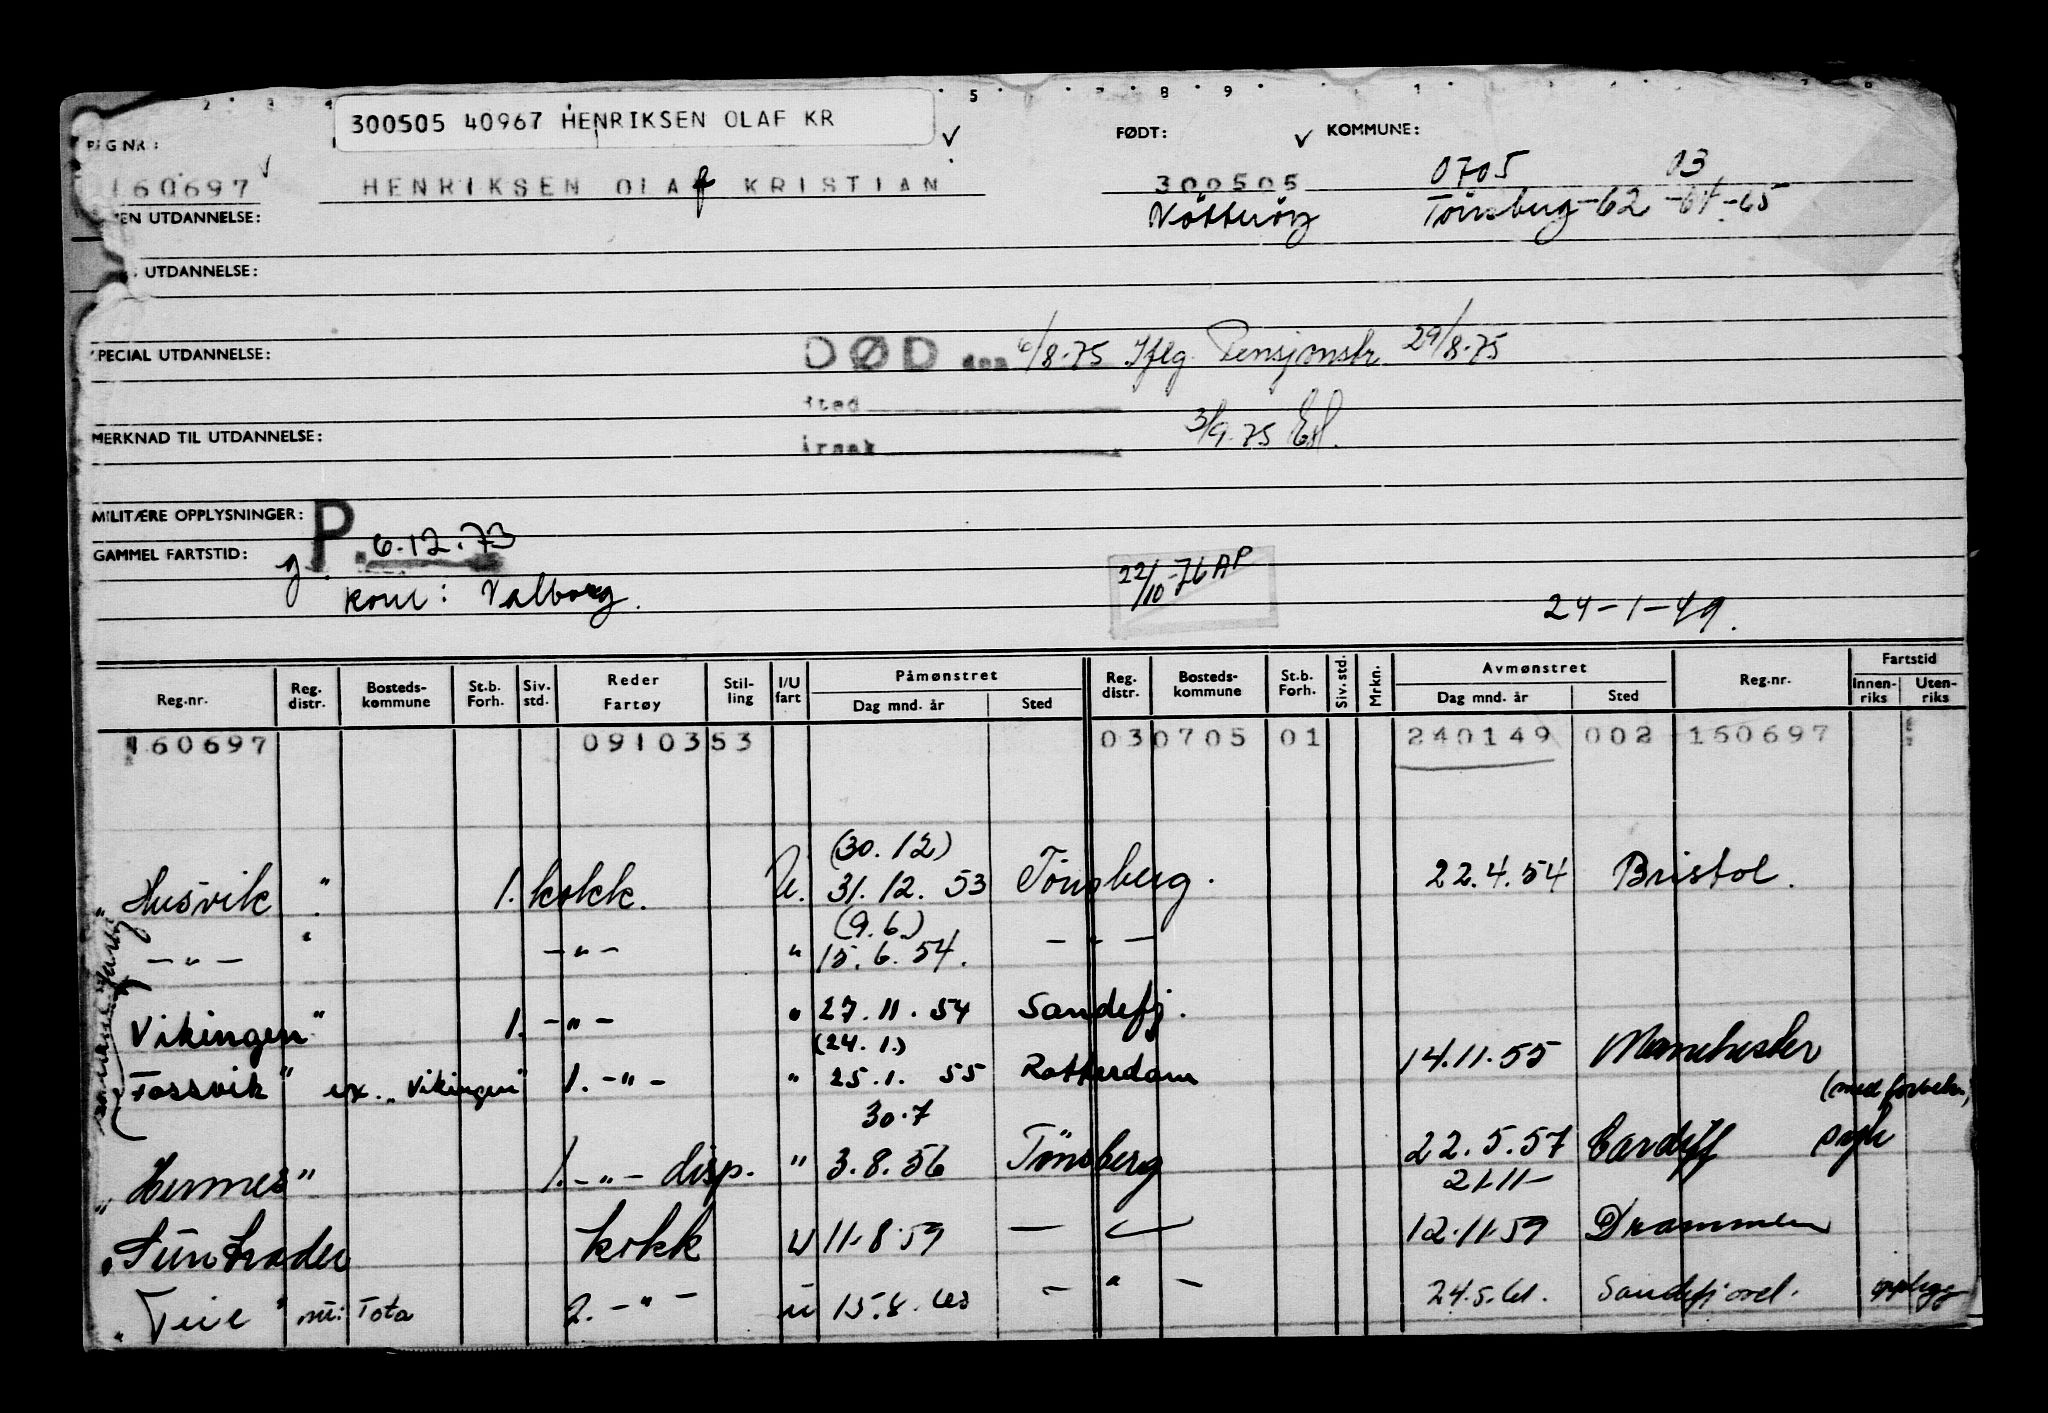 300505 40967 HENRIKSEN OLAF KR
REG NR: FØDT: KOMMUNE:
160697 HENRIKSEN OLAF KRISTIAN 300505 0705 03
UTDANNELSE: Nøtterøy Tönsberg -62 -64 -65
UTDANNELSE:
SPECIAL UTDANNELSE: DØD den 6/8-75 Iflg. Pensjonstr. 29/8-75
Sted
3/9-75
MERKNAD TIL UTDANNELSE: Årsak
MILITÆRE OPPLYSNINGER: P. 6.12.73
GAMMEL FARTSTID: g
22/10-76 AP
kone: Valborg.
24-1-49.
Reg.nr. Reg. distr. Bosteds- kommune St.b. Forh. Siv. std. Reder Fartøy Stil- ling I/U fart Påmønstret Dag mnd. år Sted Reg. distr. Bosteds- kommune St.b. Forh. Siv. std. Mrkn. Avmønstret Dag mnd. år Sted Reg.nr. Fartstid Innen- riks Uten- riks
160697 0910353 030705 01 240149 002 160697
(30.12)
"Husvik" 1. kokk. U. 31.12.53 Tönsberg. 22.4.54 Bristol.
(9.6.)
-"- " -"- " 15.6.54. -"-
Vikingen" 1. -"- " 27.11.54 Sandefj.
(24.1.)
Fossvik" ex. "Vikingen" 1. -"- " 25.1.55 Rotterdam 14.11.55 Manchester
30.7
"Hermes" 1. -"- disp. " 3.8.56 Tönsberg 22.5.57 Cardiff syk
21-11-
"Suntrader kokk U 11-8-59 12-11-59 Drammen
"Teie" nu: Tota 2. -"- u 15.8.60 -"- 24.5.61. Sandefjord. opplegg